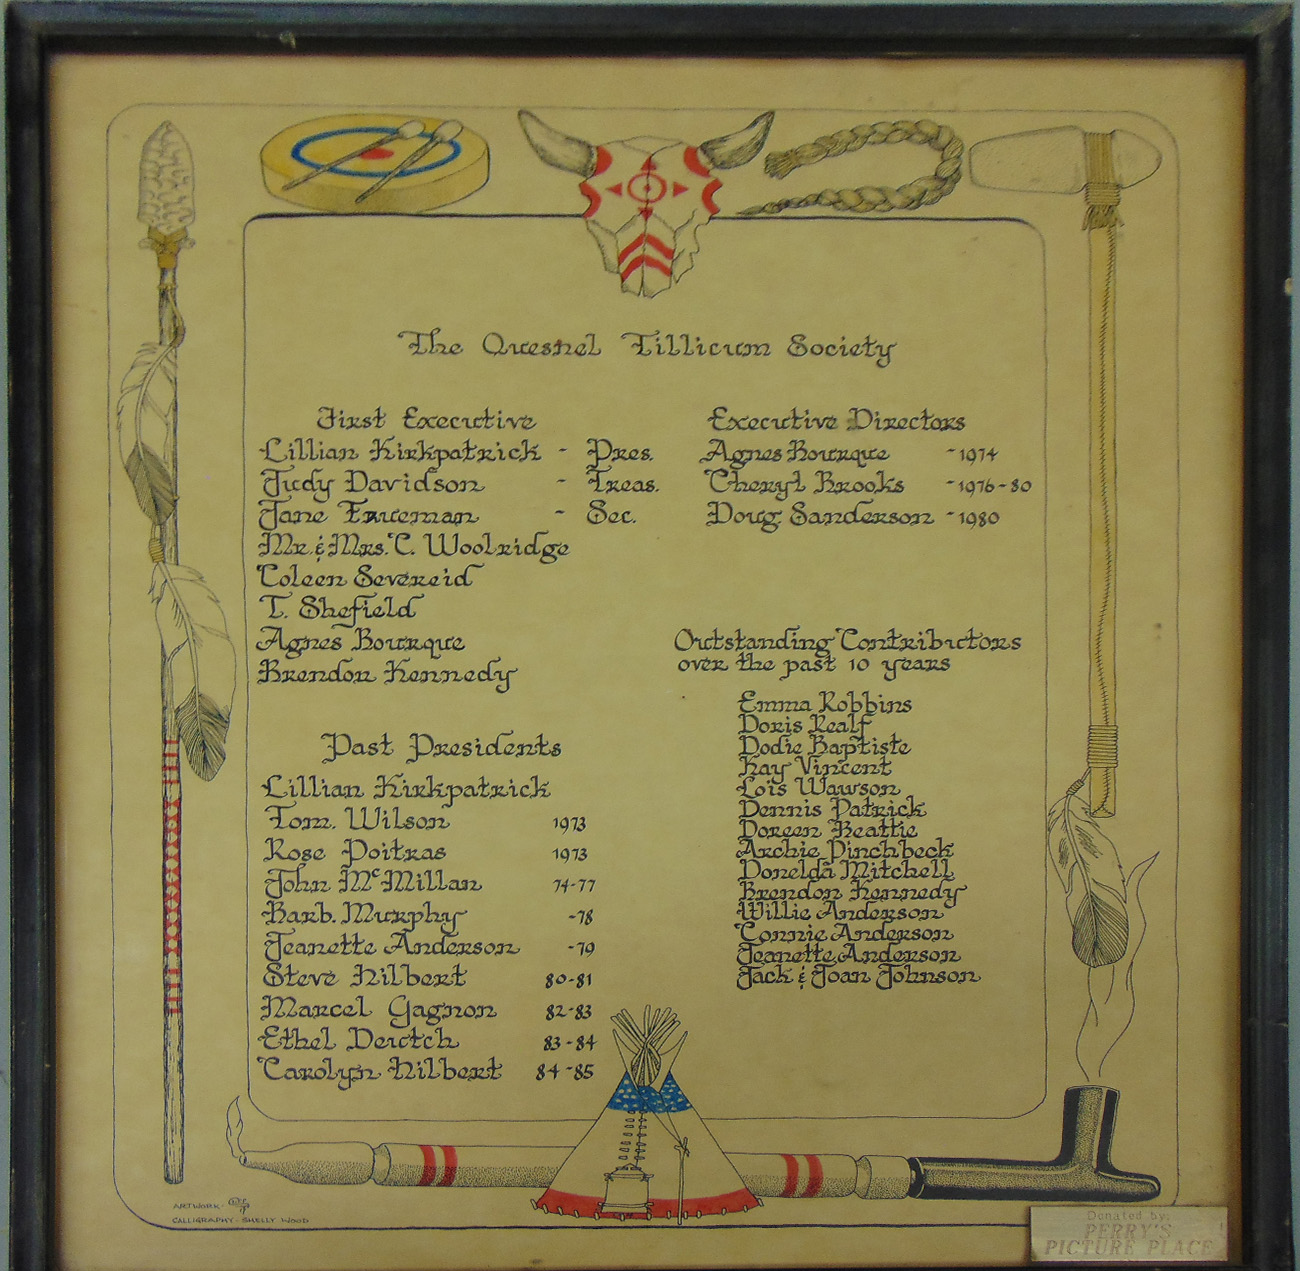 The Quesnel Tillicum Society
First Executive
Lillian Kirkpatrick - Pres.
Judy Davidson - Treas.
Jane Frueman - Sec.
Mr. & Mrs. C. Woolridge
Coleen Severeid
T. Shefield
Agnes Bourque
Brendon Kennedy
Past Presidents
Lillian Kirkpatrick
Tom. Wilson 1973
Rose Poitras 1973
John McMillan 74-77
Barb. Murphy -78
Jeanette Anderson -79
Steve Hilbert 80-81
Marcel Gagnon 82-83
Ethel Deutch 83-84
Carolyn Hilbert 84-85
Executive Directors
Agnes Bourque -1974
Cheryl Brooks -1976-80
Doug Sanderson -1980
Outstanding Contributors
over the past 10 years
Emma Robbins
Doris Realf
Dodie Baptiste
Kay Vincent
Lois Wawson
Dennis Patrick
Doreen Beattie
Archie Pinchbeck
Donelda Mitchell
Brendon Kennedy
Willie Anderson
Connie Anderson
Jeanette Anderson
Jack & Joan Johnson
ARTWORK·
CALLIGRAPHY·SHELLY WOOD
Donated by:
PERRY'S
PICTURE PLACE